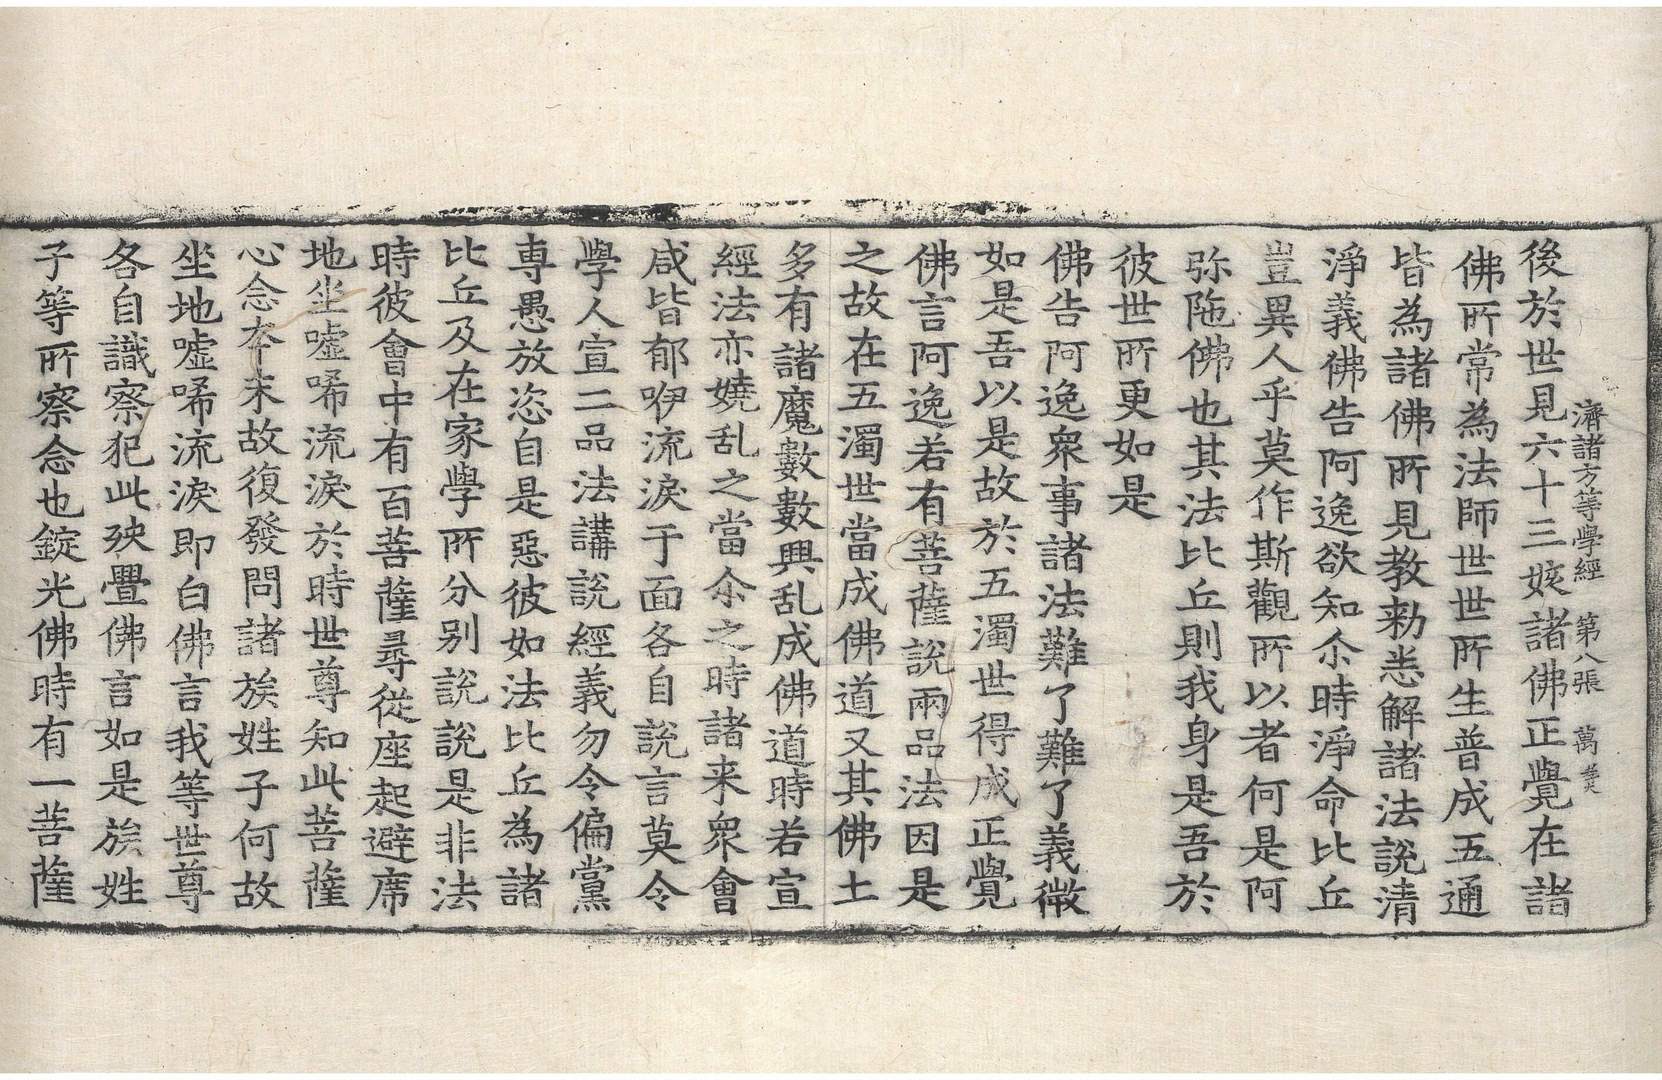 濟諸方等學經　第八張　萬
後於世見六十三姟諸佛正覺在諸
佛所常為法師世世所生普成五通
皆為諸佛所見教勑悉解諸法說清
淨義佛告阿逸欲知尒時淨命比丘
豈異人乎莫作斯觀所以者何是阿
弥陁佛也其法比丘則我身是吾於
彼世所更如是
佛告阿逸衆事諸法難了難了義微
如是吾以是故於五濁世得成正覺
佛言阿逸若有菩薩說兩品法因是
之故在五濁世當成佛道又其佛土
多有諸魔數數興乱成佛道時若宣
經法亦嬈乱之當尒之時諸来衆會
咸皆郁咿流淚于面各自說言莫令
學人宣二品法講說經義勿令偏黨
専愚放恣自是惡彼如法比丘為諸
比丘及在家學所分別說說是非法
時彼會中有百菩薩尋從座起避席
地坐噓唏流淚於時世尊知此菩薩
心念本末故復發問諸族姓子何故
坐地噓唏流淚即白佛言我等世尊
各自識察犯此殃舋佛言如是族姓
子等所察念也錠光佛時有一菩薩